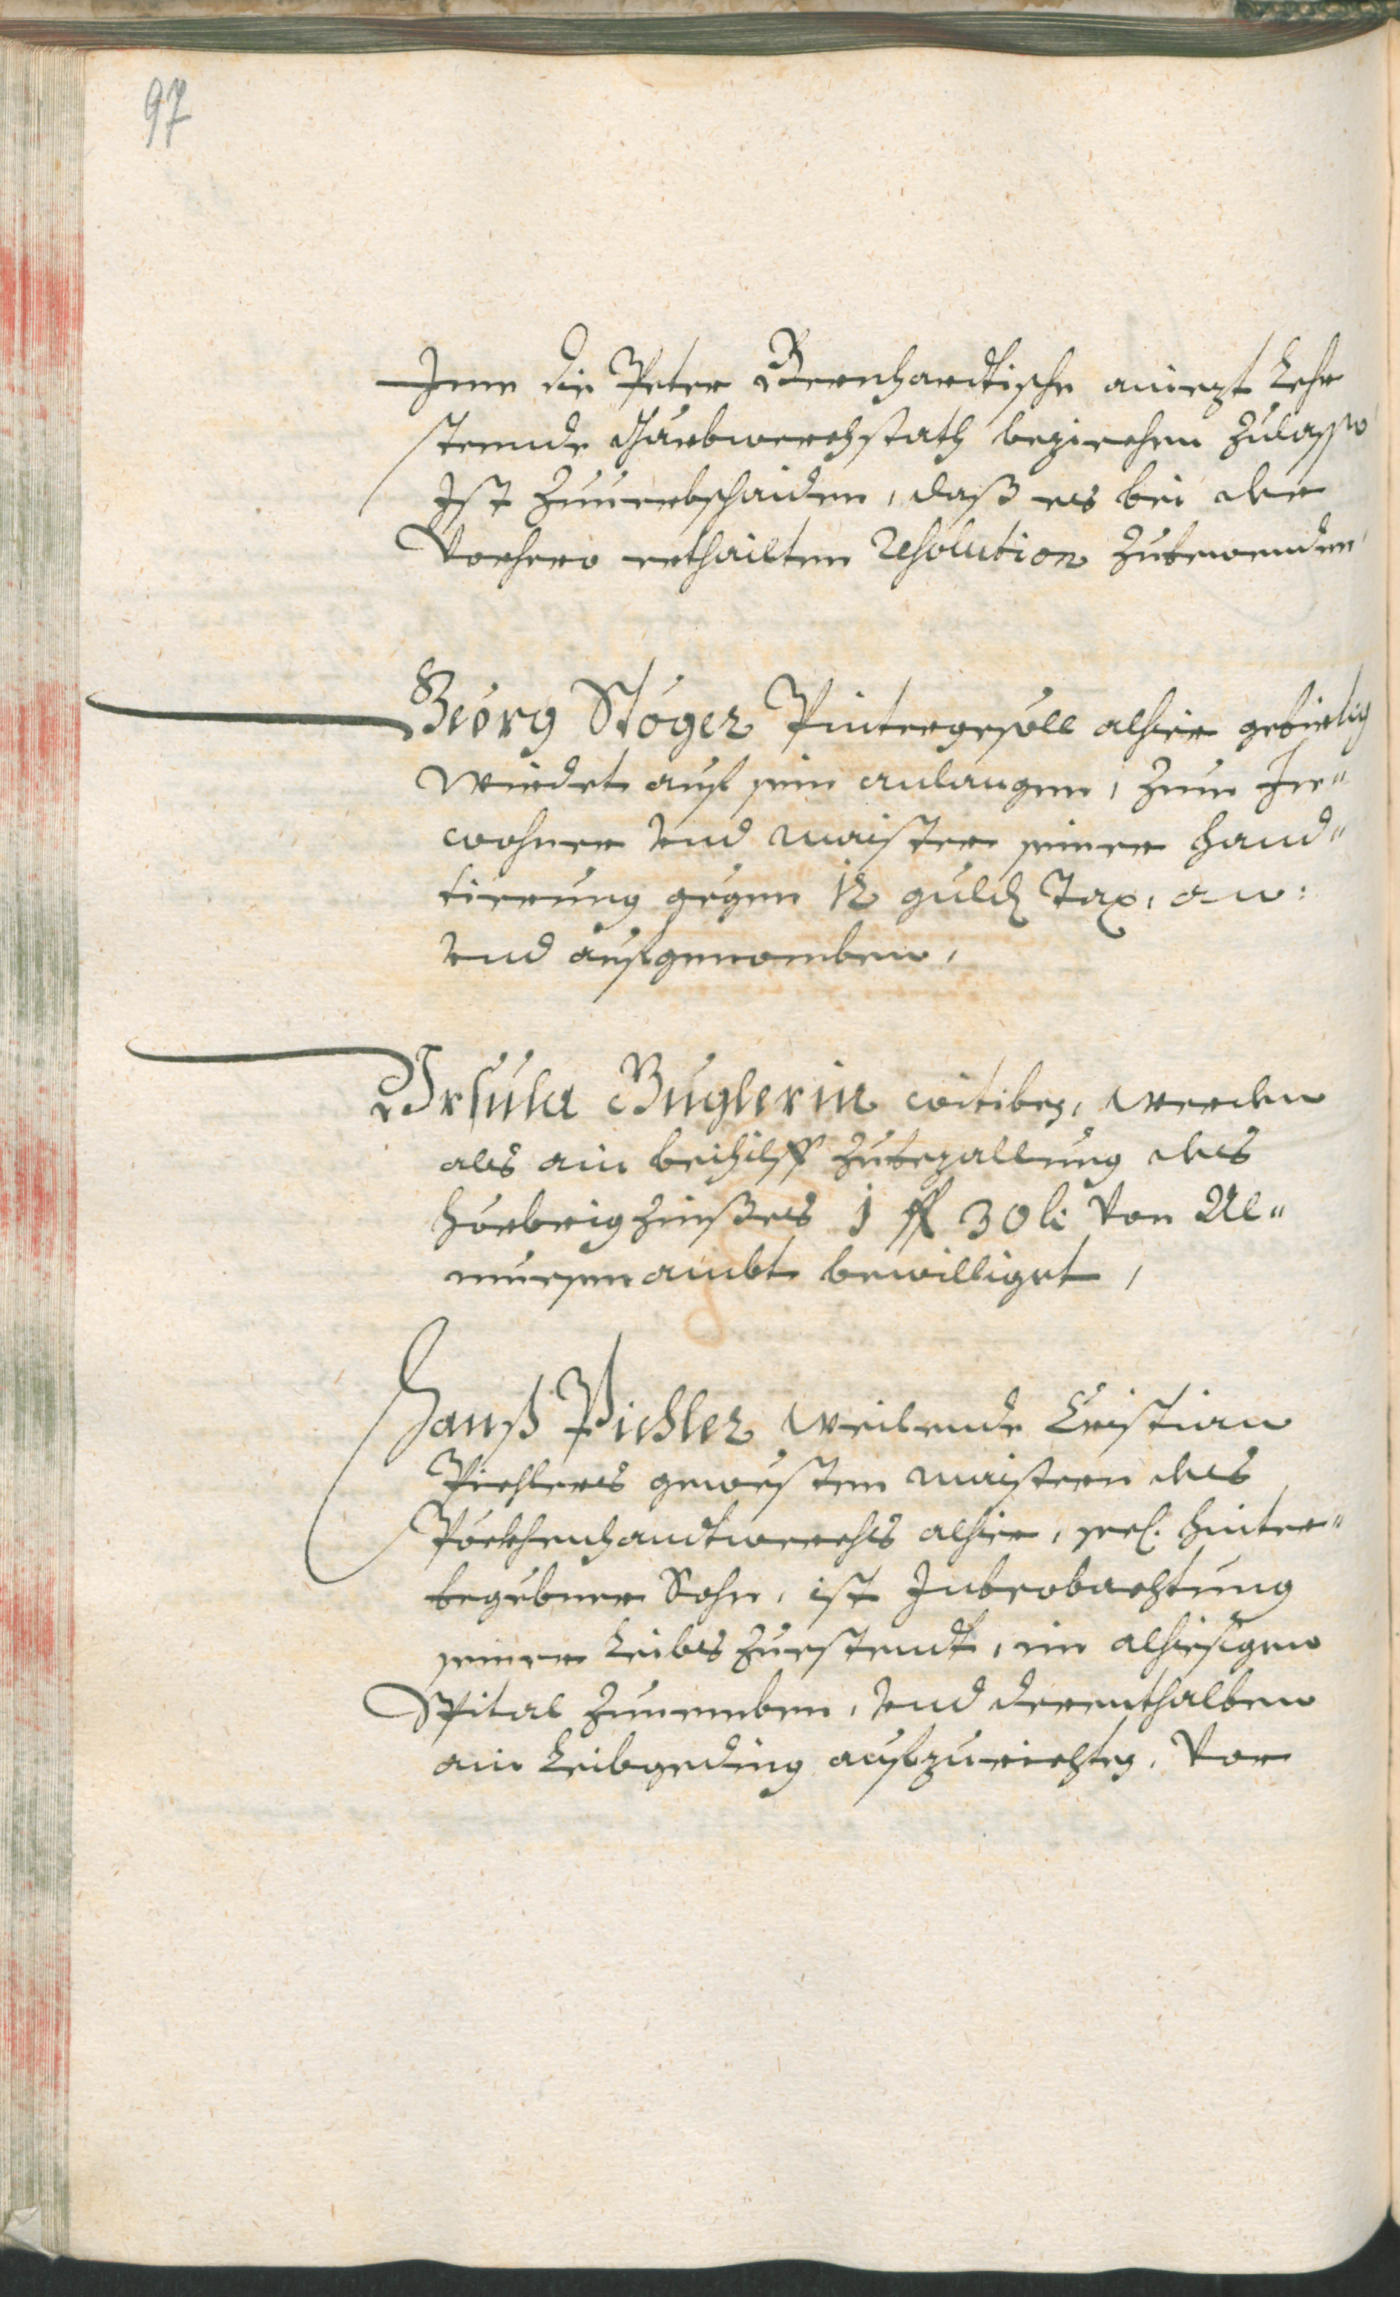 97
Ime die Peter Bernhardtische aniezt Lehr
steende Garbwerchstath beziechen zulassen
Ist zuuerbschaiden, daß es bei der
Vorhero erthailten Resolution Zubewenden
Georg Stöger Pintergesöll alhier gebirtig
wirdet auf sein anlangen, zum In¬
wohner vnd maister seiner Hand¬
tierung gegen 12 guld Tax, an:
vnd aufgenomben,
Vrsula Buglerin witibe, werden
als ein beihilff zubezallung des
Hörbrigzinßes 1 fl 30 k: von Al¬
muesenambt bewilliget,
Hanß Pichler weilende Cristian
Pichlers gewesten maistern des
Pöckhenhandtwerchs alhier, seel. hinter¬
begebner Sohn, ist Inbeobachtung
seiner Leibs Zuestendt, im alhiesigen
Spital zunemben, vnd derenthalben
ain Leibgeding aufzurichten, Vor